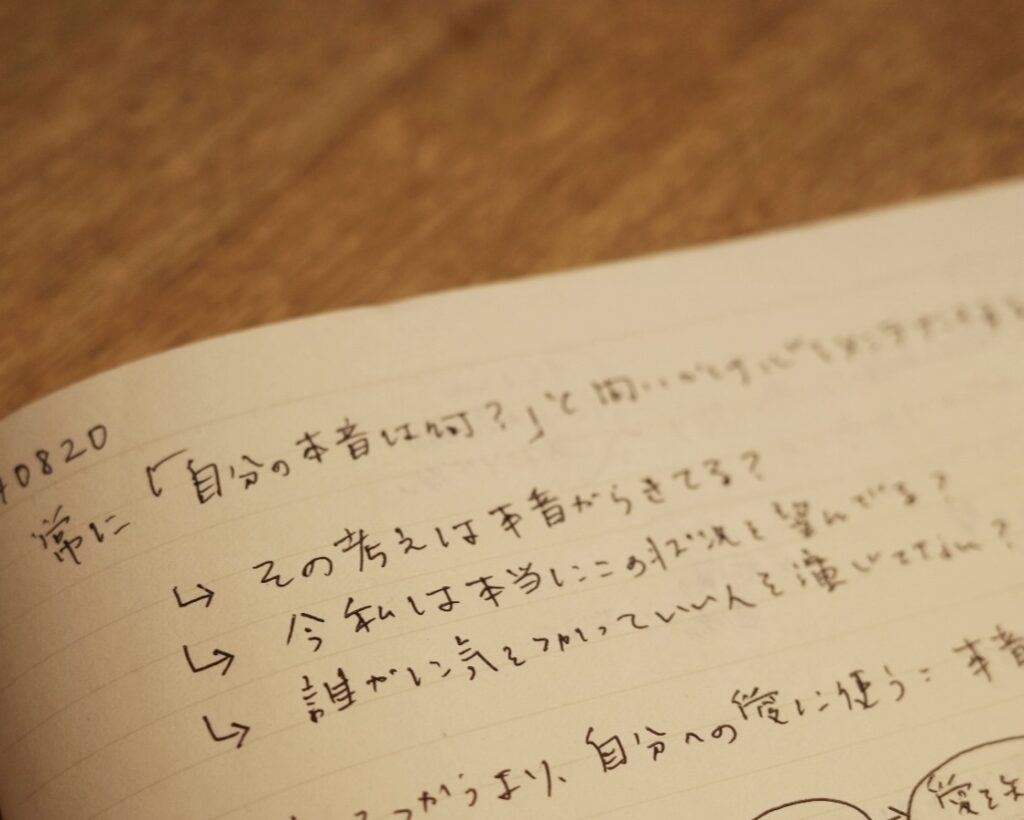 0820
常に「自分の本音は何？」と問いかけ
↳ その考えは本音からきてる？
↳ 今私は本当にこの状況を望んでる？
↳ 誰かに気をつかっていい人を演じてない？
つかうより、自分への愛に使う：本音
愛を